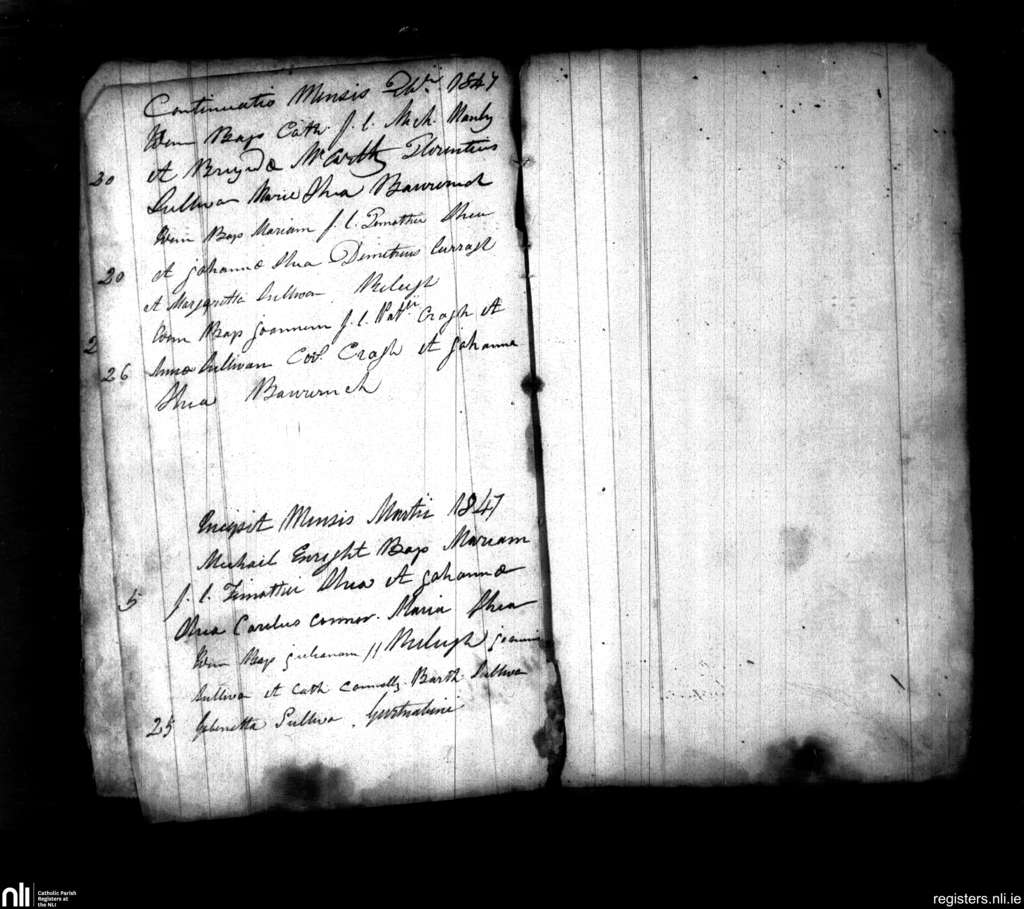 Continuatio Mensis 1847
Idem Bap Cath. f. l. Mich.
20 et Brigidæ McCarthy Florentius
Sullivan Marie Shea
Idem Bap Mariam f. l. Timothei Shea
20 et Johannæ Shea Demetrius Curragh
et Margaretta Sullivan
Idem Bap Joannem f. l. Cragh et
2
26 Annæ Sullivan Cragh et Johanna
Shea
Incipit Mensis Martii 1847
Michail Enright Bap Mariam
5 f. l. Timothei Shea et Johannæ
Shea Carolus Connor. Maria Shea
Idem Bap Julianam // Joannis
Sullivan et Cath Connolly Barth Sullivan
25 Gobinetta Sullivan
nli
Catholic Parish
Registers at
the NLI
registers.nli.ie